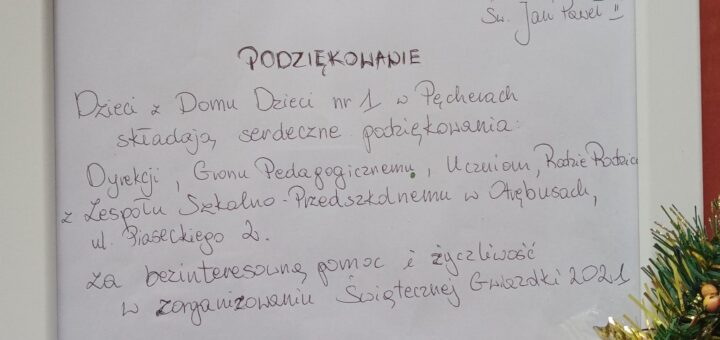 Św. Jan Paweł II
PODZIĘKOWANIE
Dzieci z Domu Dzieci nr 1 w Pęcherach
składają serdeczne podziękowania:
Dyrekcji, Gronu Pedagogicznemu, Uczniom, Radzie Rodziców
z Zespołu Szkolno-Przedszkolnemu w Otrębusach,
ul. Piaseckiego 2.
za bezinteresowną pomoc i życzliwość
w zorganizowaniu Świątecznej Gwiazdki 2021